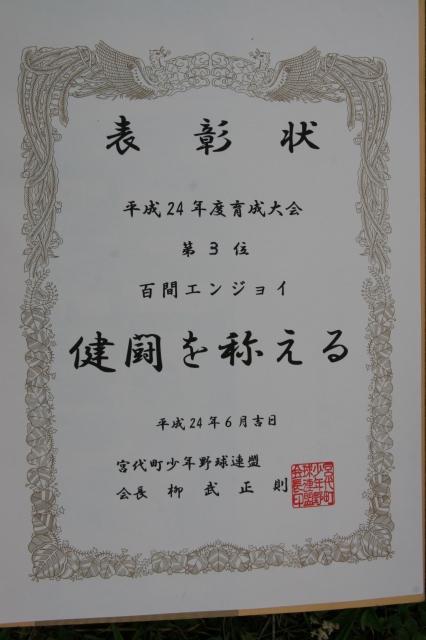 表彰状
平成24年度育成大会
第3位
百間エンジョイ
健闘を称える
平成24年6月吉日
宮代町少年野球連盟
会長 柳武正則
宮代町
少年野
球連盟
会長印